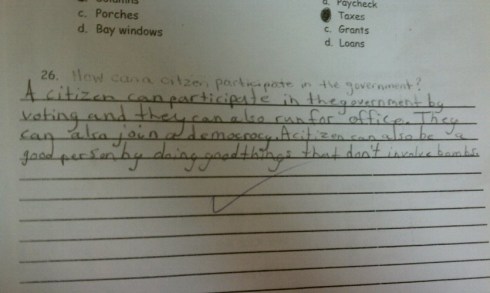 Columns
c. Porches
d. Bay windows
a. Paycheck
Taxes
c. Grants
d. Loans
26. How can a citzen participate in the government?
A citizen can participate in the government by
voting and they can also run for office. They
can also join a democracy. A citizen can also be a
good person by doing good things that don't involve bombs.